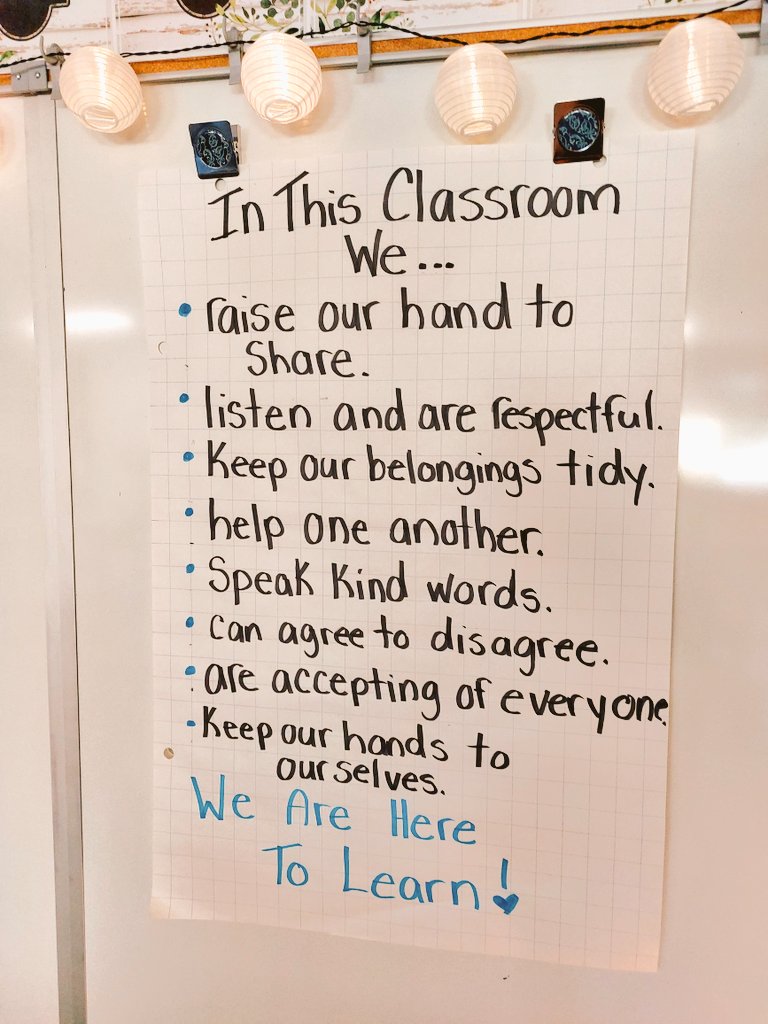 In This Classroom
We...
• raise our hand to
Share.
• listen and are respectful.
• Keep our belongings tidy.
• help one another.
• Speak Kind words.
• can agree to disagree.
• are accepting of everyone.
• Keep our hands to
ourselves.
We Are Here
To Learn!